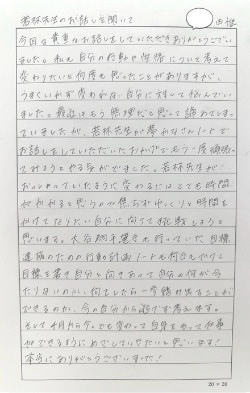 若林先生のお話しを聞いて
今回は貴重なお話しをしていただきありがとうござい
ました。私も自分の行動や性格について考えて
変わりたいと何度も思ったことがありますが、
うまくいかず変われない自分に対して悩んでい
ました。最近はもう無理だと思って諦めてしまっ
ていましたが、若林先生が夢のなるノートで
お話しをしていただいたおかげでもう一度頑張っ
てみようとやる気がでました。若林先生が
おっしゃっていたように変わるにはとても時間
がかかると思うので焦らずゆっくりと時間を
かけてなりたい自分に向けて挑戦しようと
思います。大谷翔平選手も行っていた目標
達成のための行動計画ノートも何台もでかくて
目標を書き自分と向きあって自分の何が今
たりないのか、何をしたら一歩踏み出ることが
できるのか、今の自分から逃げず考えます。
そして4月から少しでも変わって自身をもって仕事
ができるようにめざしていきたいと思います!
本当にありがとうございました!
20×20